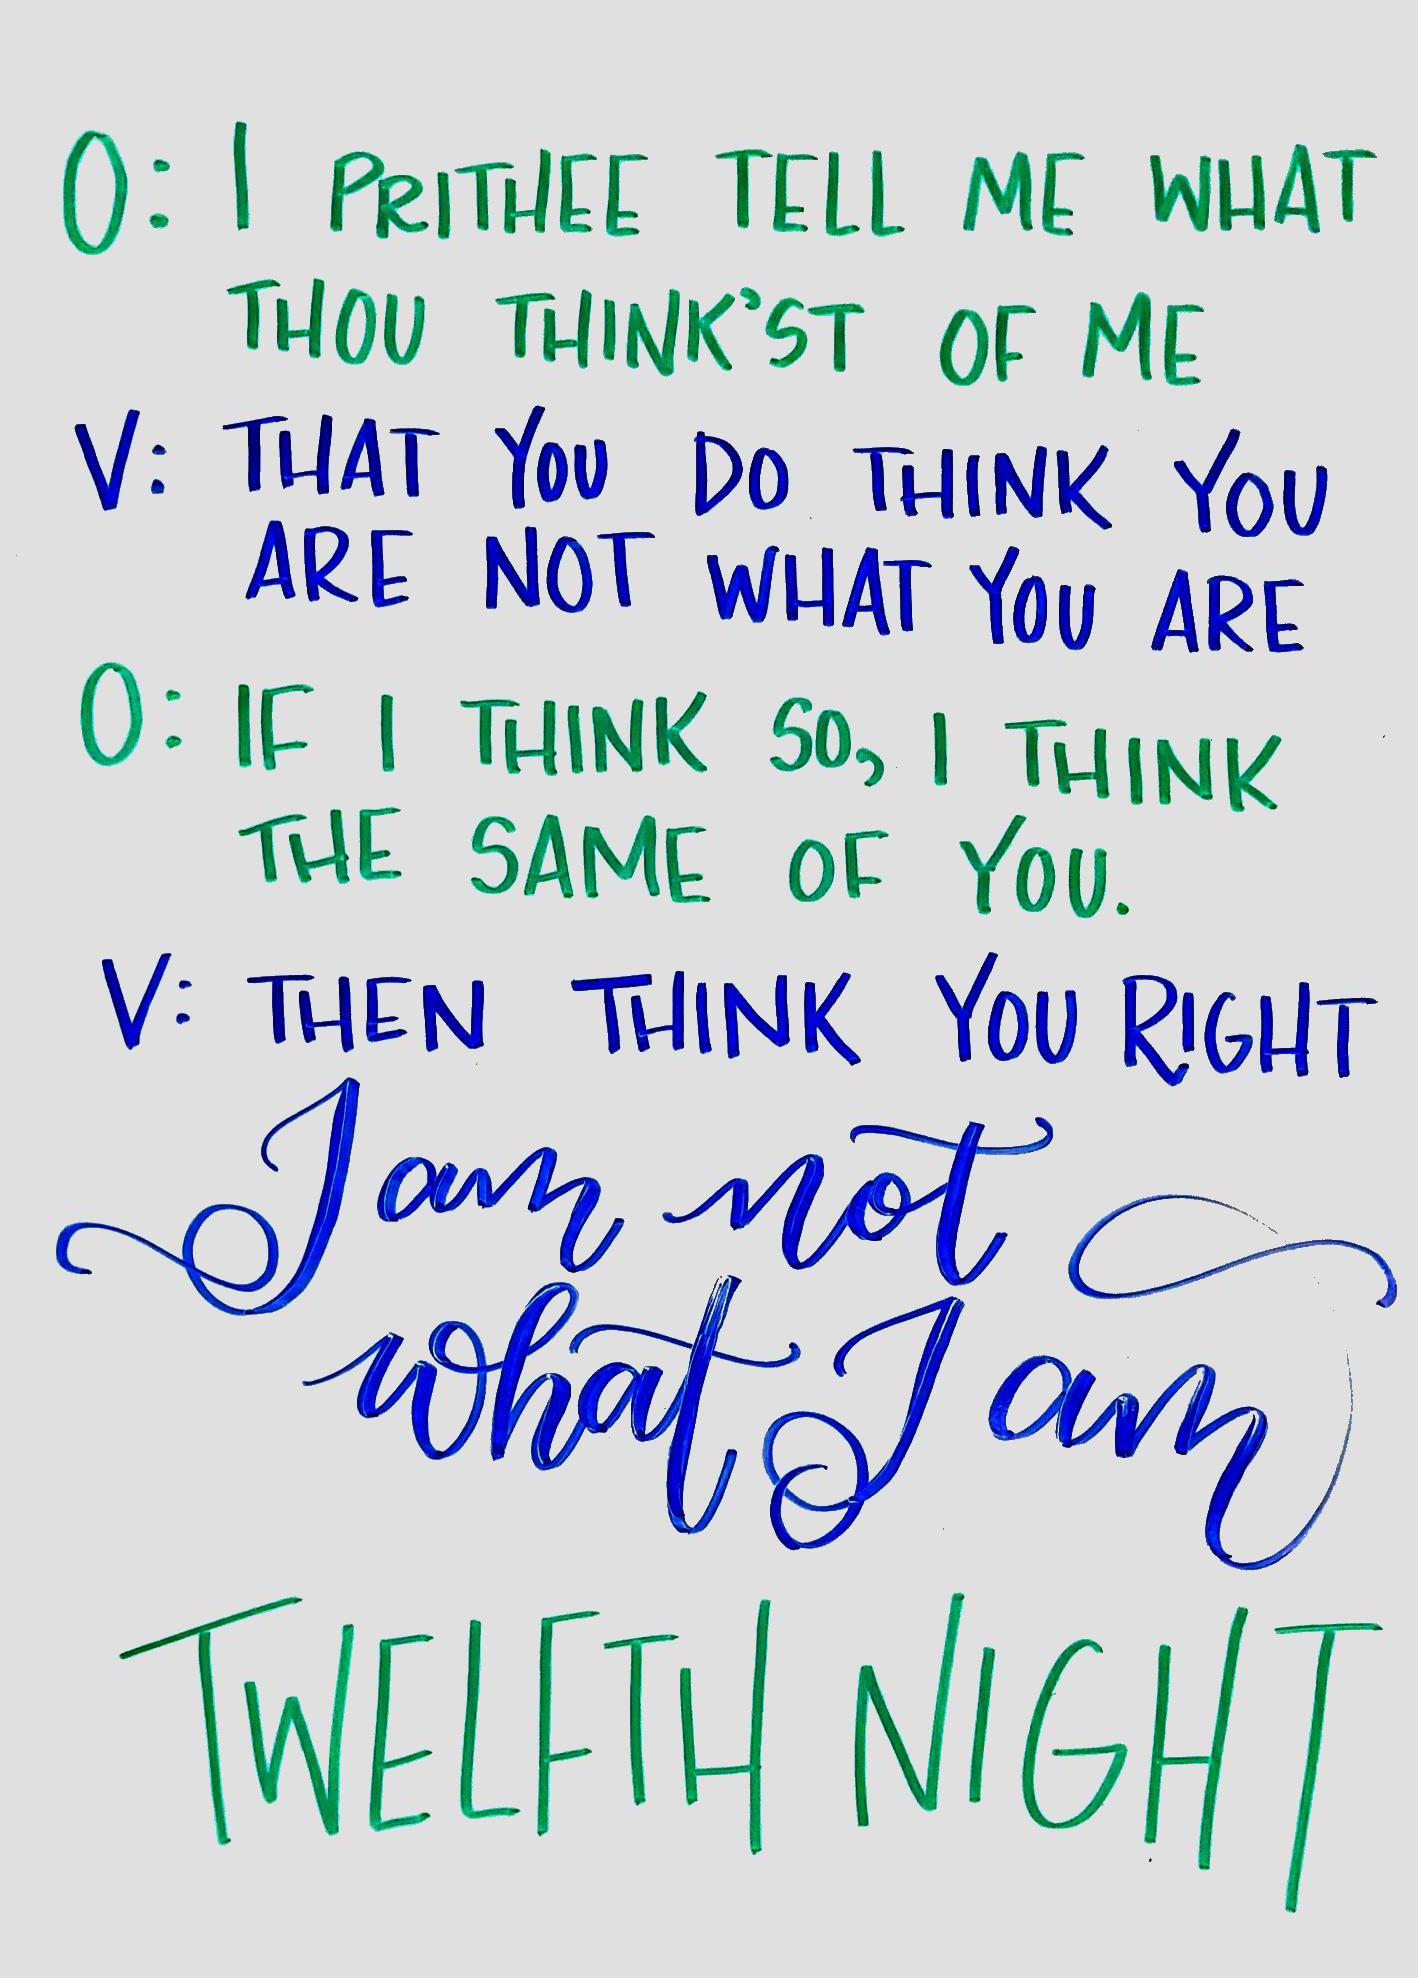 O: I PRITHEE TELL ME WHAT
THOU THINK'ST OF ME
V: THAT YOU DO THINK YOU
ARE NOT WHAT YOU ARE
O: IF I THINK SO, I THINK
THE SAME OF YOU.
V: THEN THINK YOU RIGHT
I am not
what I am
TWELFTH NIGHT